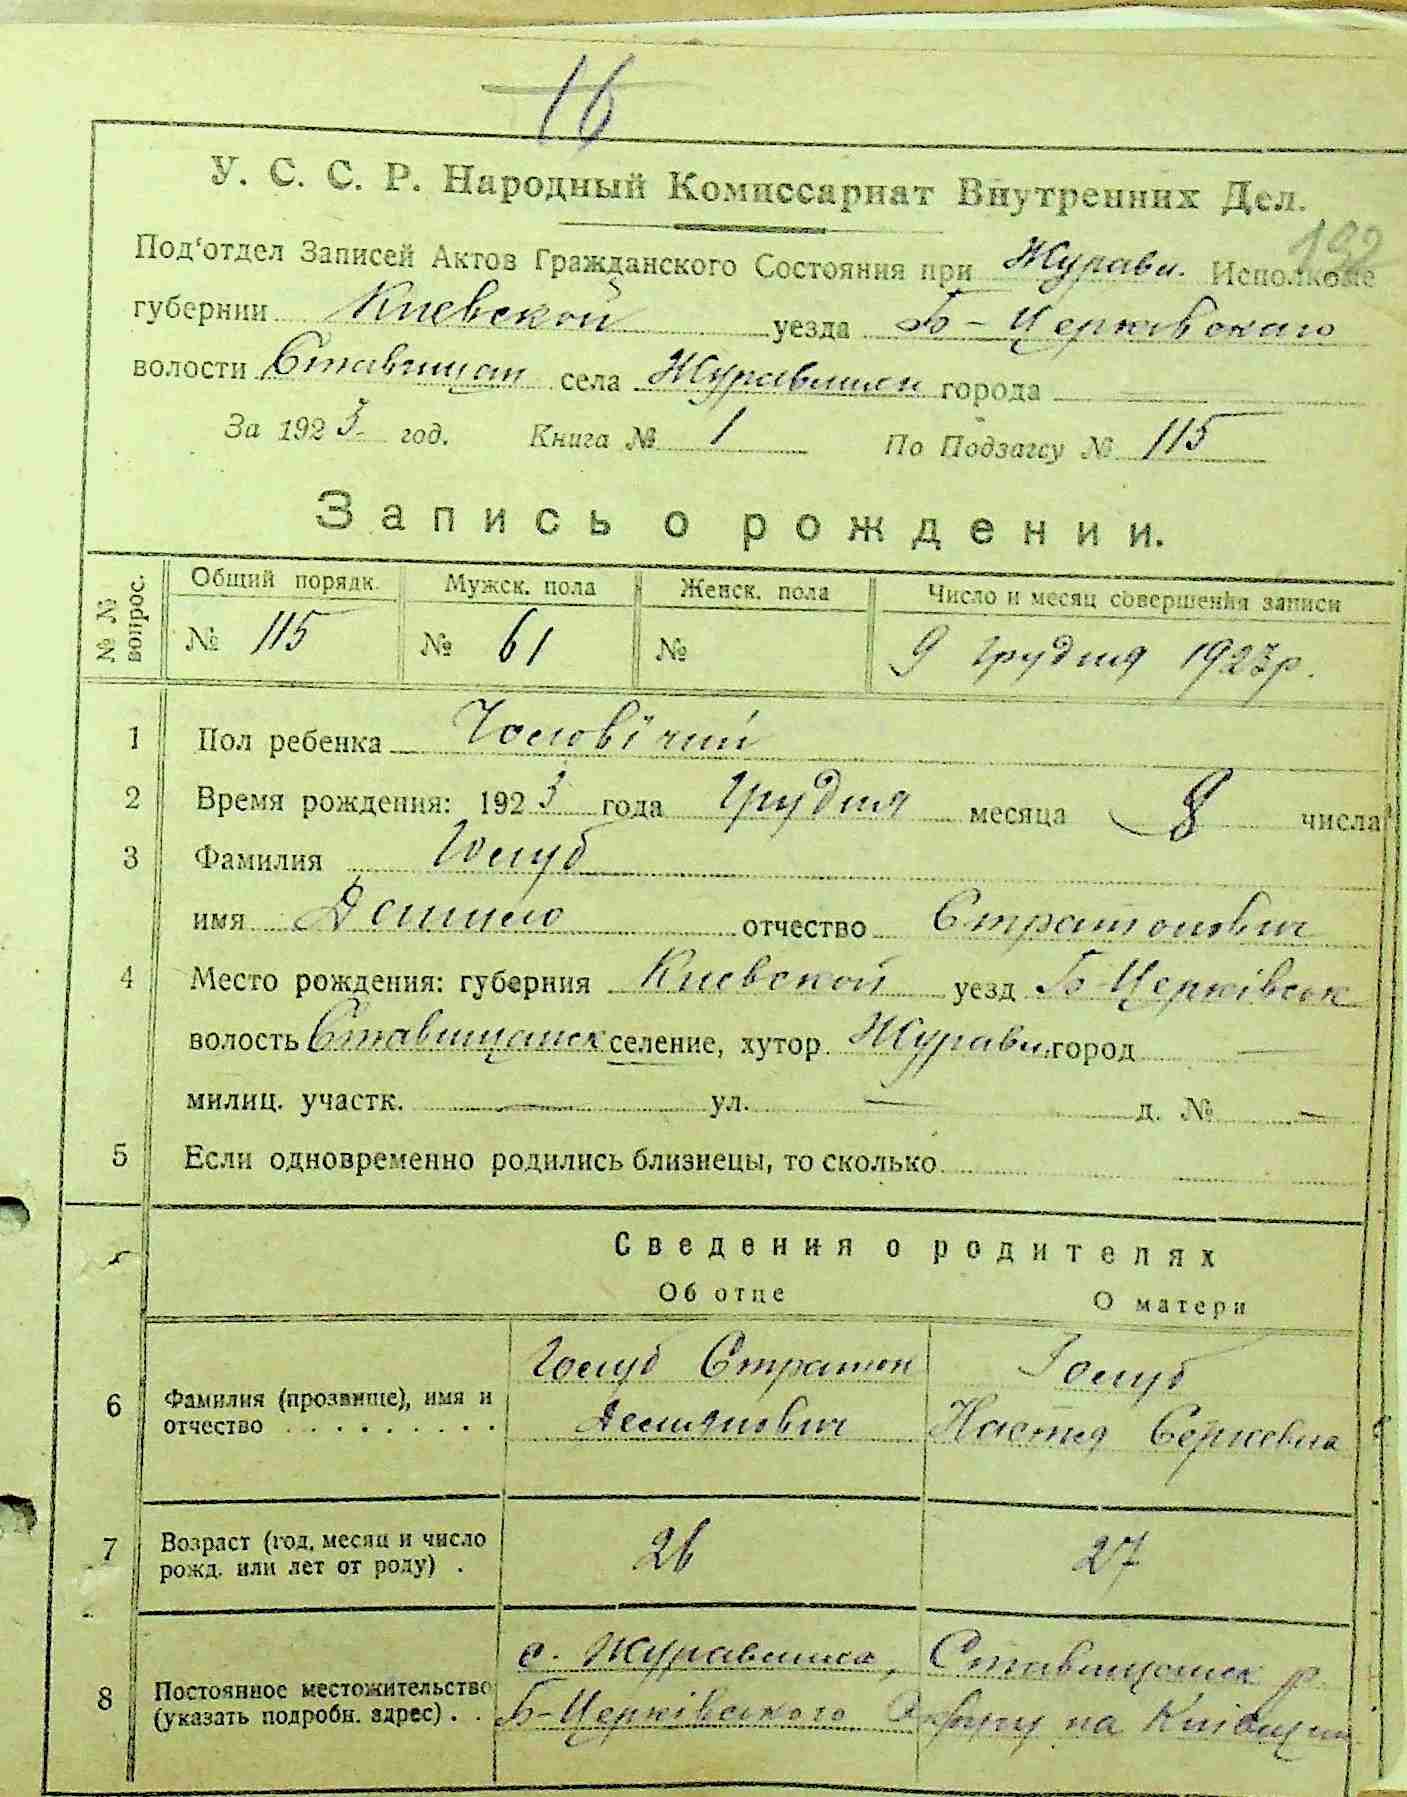 16
У. С. С. Р. Народный Комиссариат Внутренних Дел.
192
Под'отдел Записей Актов Гражданского Состояния при Журавл. Исполкоме
губернии Киевской уезда Б-Церковскаго
волости Ставищан села Журавлихи города
За 1923 год. Книга № 1 По Подзагсу № 115
Запись о рождении.
№ № вопрос. Общий порядк. Мужск. пола Женск. пола Число и месяц совершения записи
№ 115 № 61 № 9 грудня 1923р.
1 Пол ребенка Чоловічий
2 Время рождения: 1923 года Грудня месяца 8 числа
3 Фамилия Голуб
имя Данило отчество Стратонович
4 Место рождения: губерния Киевской уезд Б-Церківськ
волость Ставищанск селение, хутор Журавл. город
милиц. участк. — ул. — д. № —
5 Если одновременно родились близнецы, то сколько
Сведения о родителях
Об отце О матери
Голуб Стратон Голуб
6 Фамилия (прозвище), имя и отчество Демянович Настя Сергіевна
7 Возраст (год, месяц и число рожд. или лет от роду) 26 27
с. Журавлиха, Ставищанск р.
8 Постоянное местожительство (указать подробн. адрес) Б-Церківського Округу на Київщині